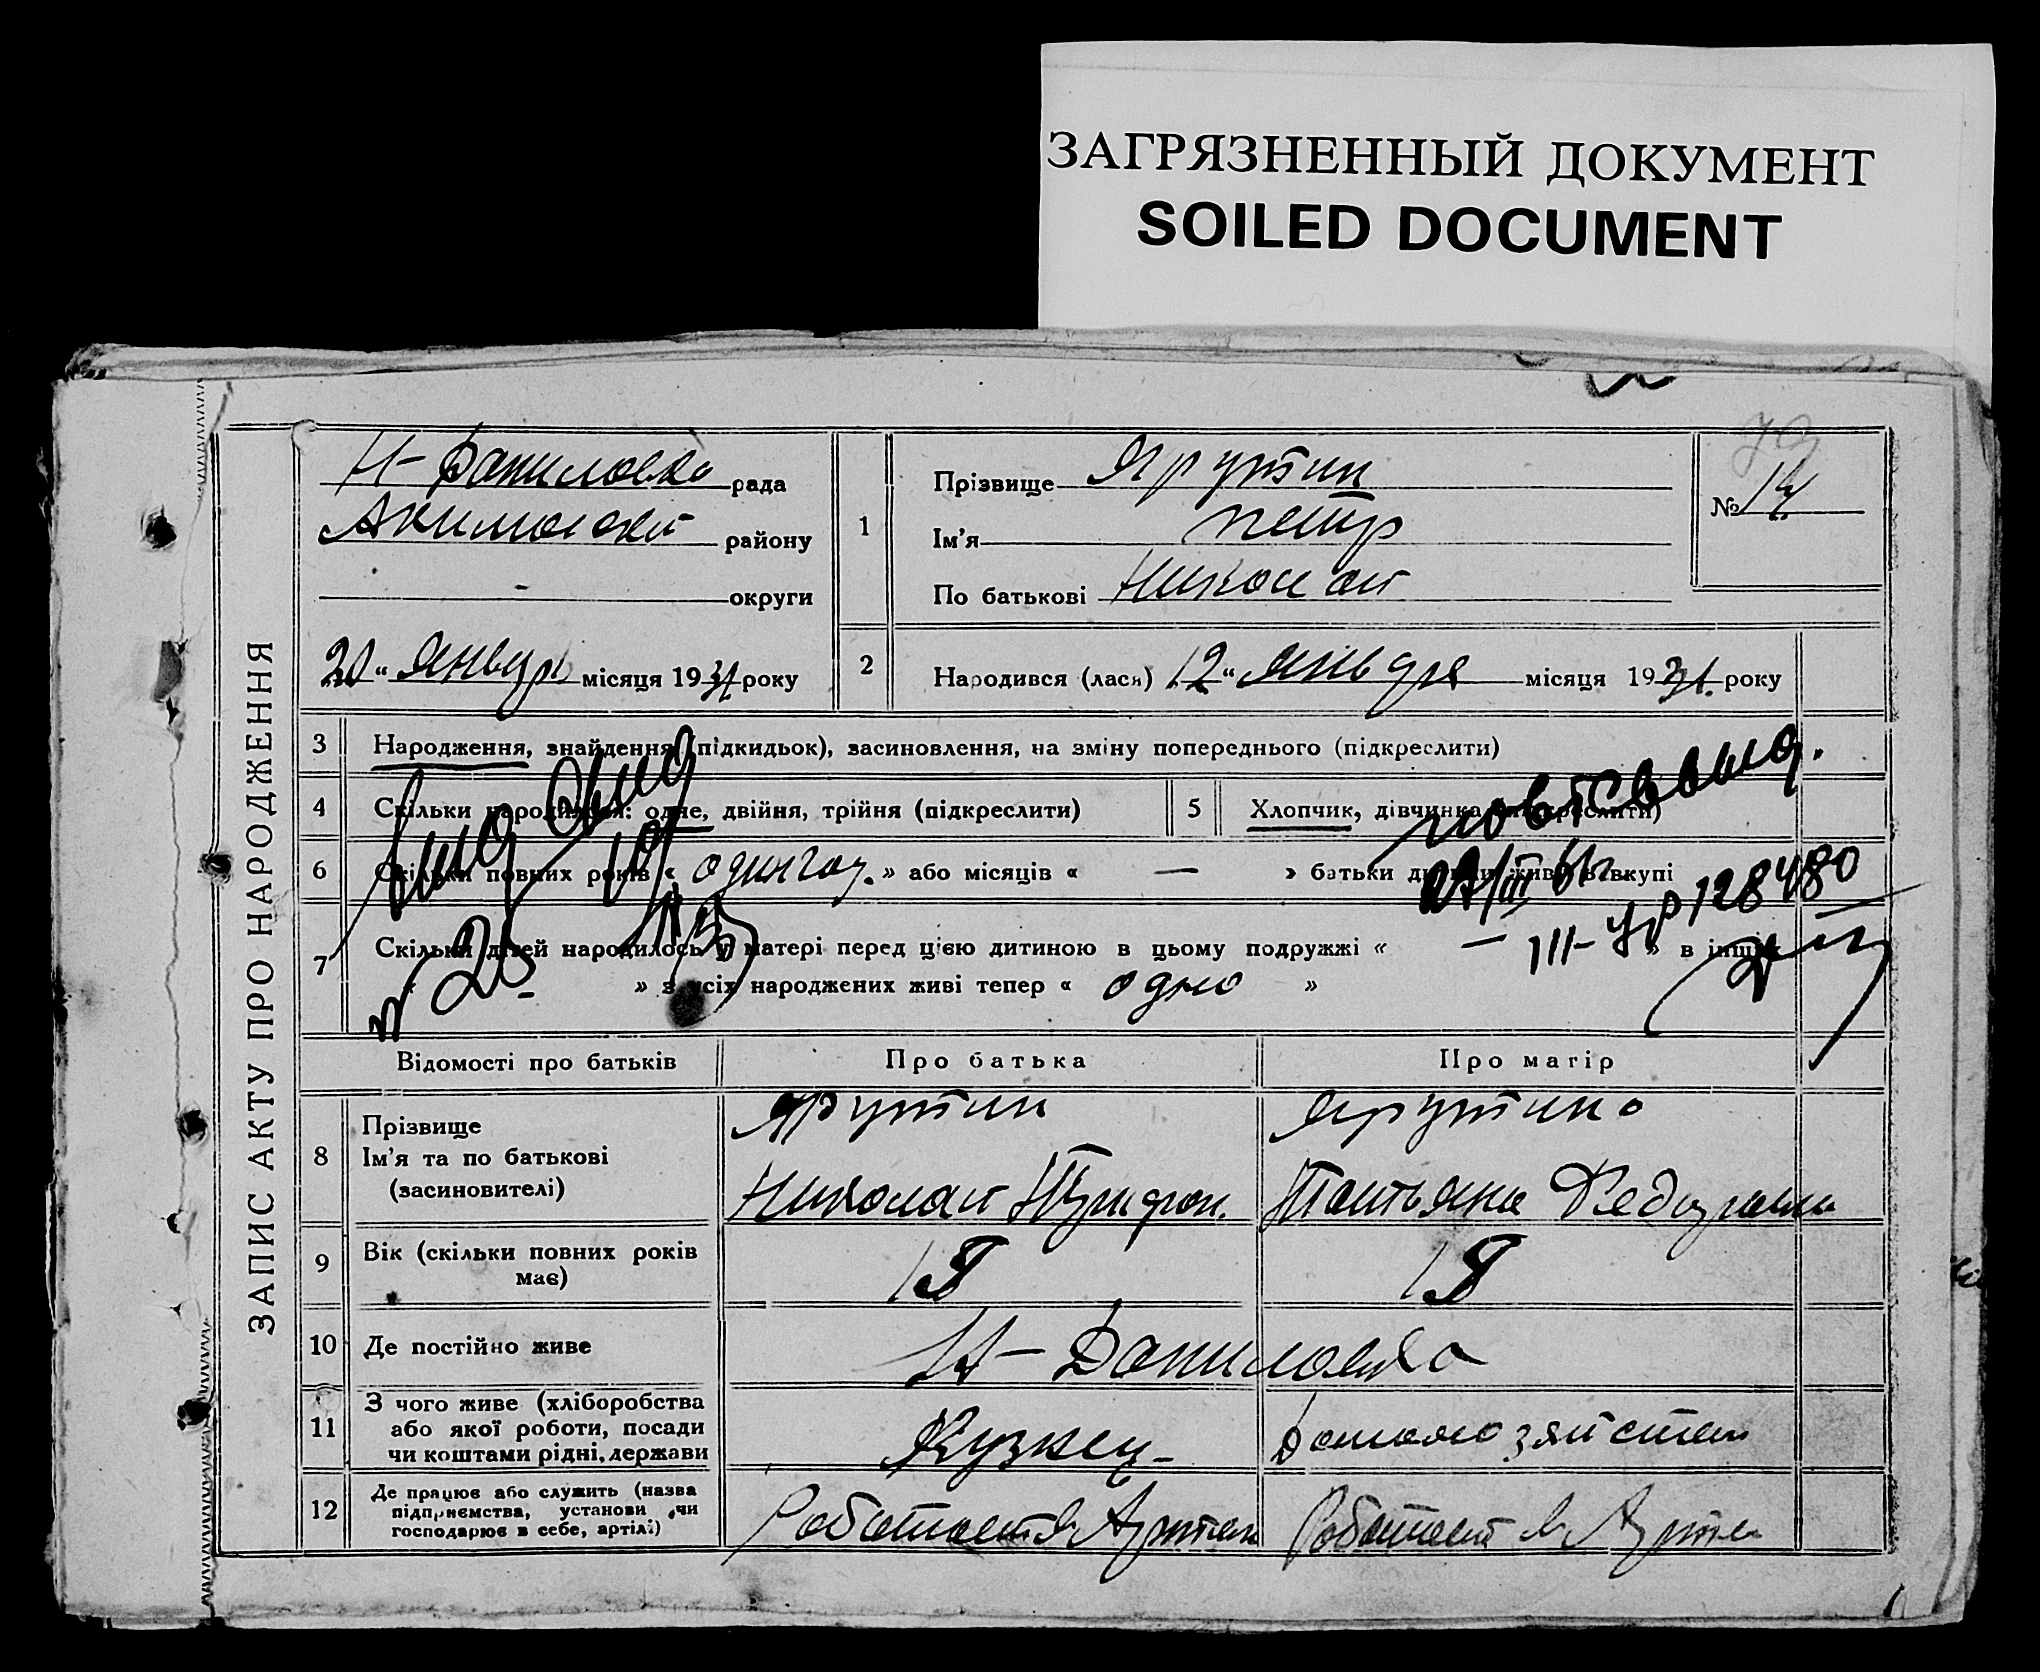 ЗАГРЯЗНЕННЫЙ ДОКУМЕНТ
SOILED DOCUMENT
ЗАПИС АКТУ ПРО НАРОДЖЕННЯ
Н-Даниловка рада
Акимовский району
- округи
20 " январь місяця 1931 року
1
Прізвище Яругин
Ім'я Петр
По батькові Николай
№ 14
2
Народився (лася) 12 " января місяця 1931. року
3 Народження, знайдення (підкидьок), засиновлення, на зміну попереднього (підкреслити)
4 Скільки народилося: одне, двійня, трійня (підкреслити)
5 Хлопчик, дівчинка (підкреслити)
6 Скільки повних років « один год. » або місяців « — » батьки дитини живуть вкупі
7 Скільки дітей народилось у матері перед цією дитиною в цьому подружжі « — » в інших
« - » з усіх народжених живі тепер « одно »
повт. выд.
III-УР 128480
Відомості про батьків
Про батька
Про матір
8 Прізвище
Ім'я та по батькові
(засиновителі)
Яругин
Николай
Яругина
Татьяна
9 Вік (скільки повних років
має)
10 Де постійно живе
Н-Даниловка
11 З чого живе (хліборобства
або якої роботи, посади
чи коштами рідні, держави
Кузнец
12 Де працює або служить (назва
підприємства, установи чи
господарює в себе, артілі)
Работает в Артели
Работает в Артели